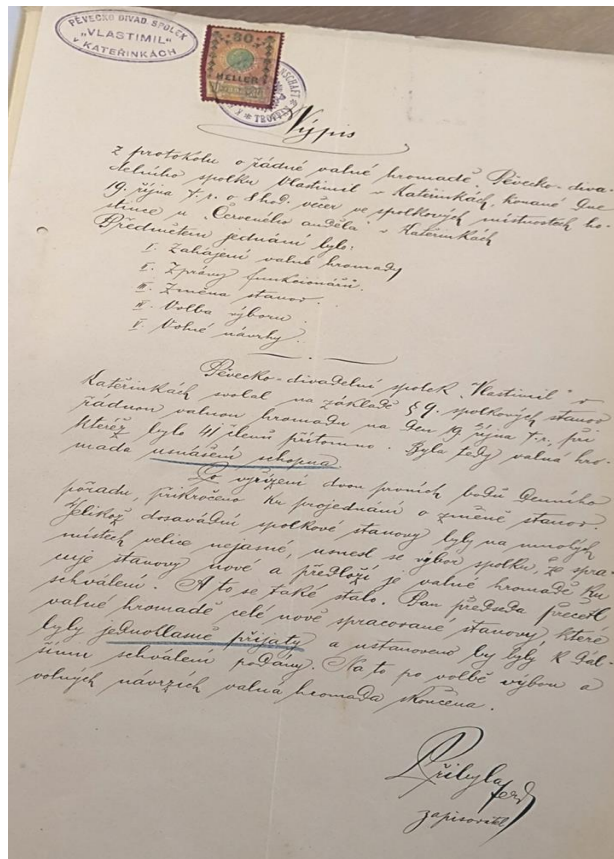 PĚVECKO DIVAD. SPOLEK
„VLASTIMIL“
v KATEŘINKÁCH
30
HELLER
TROPPAU
Výpis
z protokolu o řádné valné hromadě Pěvecko-diva-
delního spolku Vlastimil v Kateřinkách, konané dne
19. října t. r. o 8 hod. večer ve spolkových místnostech ho-
stince u „Červeného anděla“ v Kateřinkách
Předmětem jednání bylo:
I. Zahájení valné hromady
II. Zprávy funkcionářů.
III. Změna stanov.
IV. Volba výboru.
V. Volné návrhy.
Pěvecko-divadelní spolek „Vlastimil“ v
Kateřinkách svolal na základě § 9. spolkových stanov
řádnou valnou hromadu na den 19. října t. r., při
kteréž bylo 41 členů přítomno. Byla tedy valná hro-
mada usnášení schopna.
Po vyřízení dvou prvních bodů denního
pořadu, přikročeno ku projednání o změně stanov.
Jelikož dosavádní spolkové stanovy byly na mnohých
místech velice nejasné, usnesl se výbor spolku, že spra-
cuje stanovy nové a předloží je valné hromadě ku
schválení. A to se také stalo. Pan předseda přečetl
valné hromadě celé nově spracované stanovy, které
byly jednohlasně přijaty a ustanoveno by byly k dal-
šímu schválení podány. Na to po volbě výboru a
volných návrzích valná hromada skončena.
Přibyla
zapisovatel